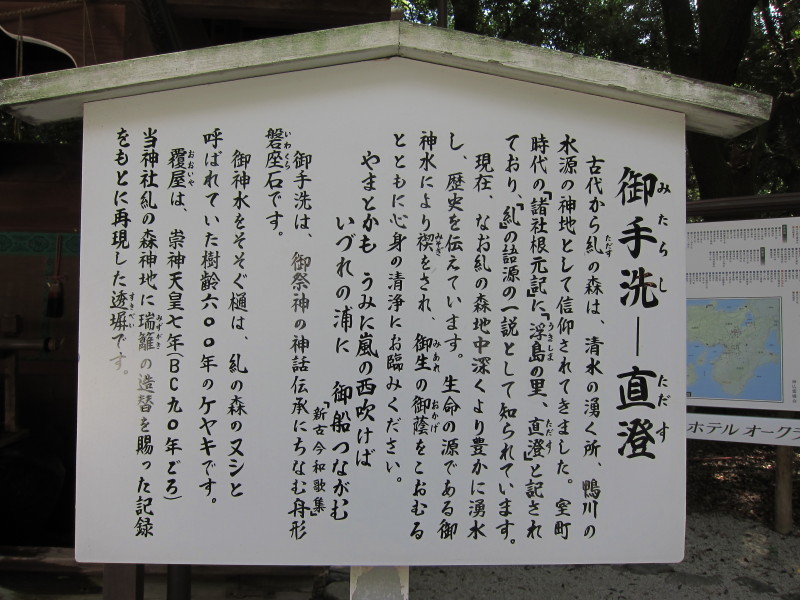 御手洗―直澄
古代から糺の森は、清水の湧く所、鴨川の
水源の神地として信仰されてきました。室町
時代の「諸社根元記」に「浮島の里、直澄」と記され
ており、「糺」の語源の一説として知られています。
現在、なお糺の森地中深くより豊かに湧水
し、歴史を伝えています。生命の源である御
神水により禊をされ、御生の御蔭をこおむる
とともに心身の清浄にお臨みください。
やまとかも うみに嵐の西吹けば
いづれの浦に 御船つながむ
「新古今和歌集」
御手洗は、御祭神の神話伝承にちなむ舟形
磐座石です。
御神水をそそぐ樋は、糺の森のヌシと
呼ばれていた樹齢六〇〇年のケヤキです。
覆屋は、崇神天皇七年(BC九〇年ごろ)
当神社糺の森神地に瑞籬の造替を賜った記録
をもとに再現した透塀です。
ホテル オークラ